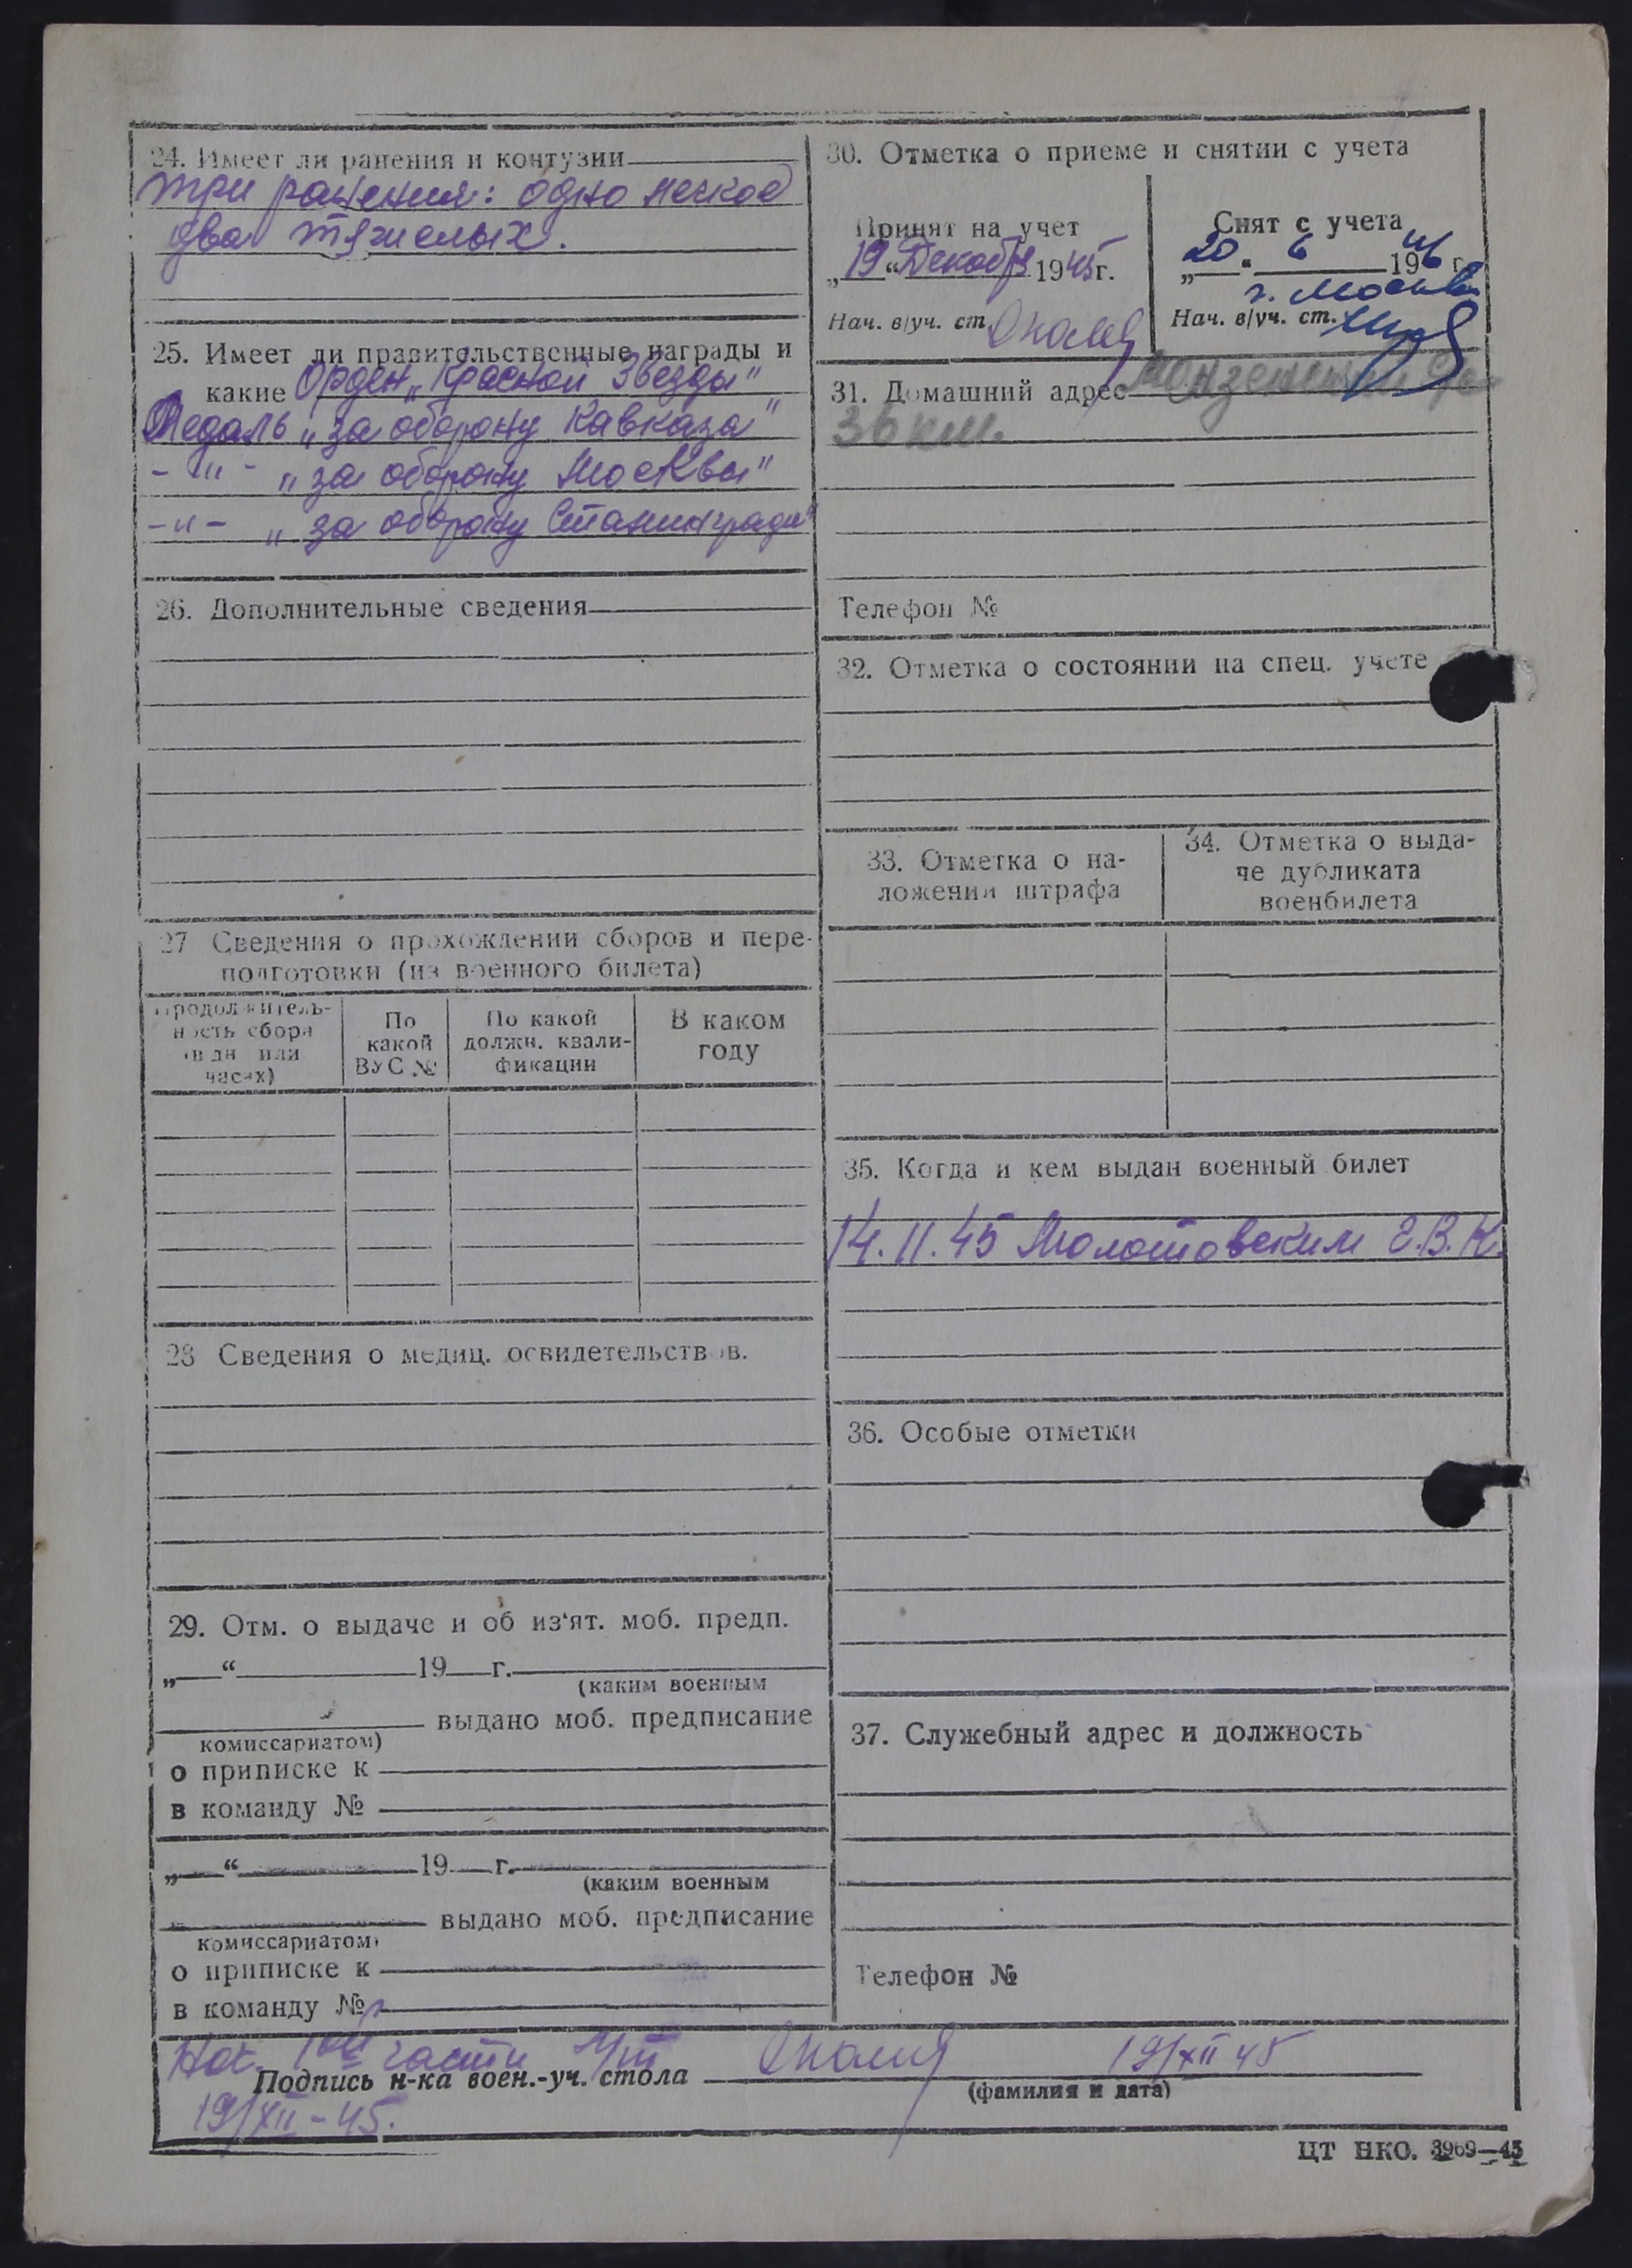 24. Имеет ли ранения и контузии
три ранения: одно легкое
два тяжелых.
25. Имеет ли правительственные награды и
какие Орден „Красной Звезды"
Медаль „за оборону Кавказа"
- " - „за оборону Москвы"
- " - „за оборону Сталинграда"
26. Дополнительные сведения
27 Сведения о прохождении сборов и пере-
подготовки (из военного билета)
Продолжитель-
ность сбора
(в дн или
часах)
По
какой
ВУС №
По какой
должн. квали-
фикации
В каком
году
28 Сведения о медиц. освидетельствов.
29. Отм. о выдаче и об из'ят. моб. предп.
„ “ 19 г.
(каким военным
выдано моб. предписание
комиссариатом)
о приписке к
в команду №
„ “ 19 г.
(каким военным
выдано моб. предписание
комиссариатом)
о приписке к
в команду №
30. Отметка о приеме и снятии с учета
Принят на учет
„19“ Декабря 1945г.
Нач. в/уч. ст.
Снят с учета
„20“ 6 1946 г.
г. Москва
Нач. в/уч. ст.
31. Домашний адрес
36 км.
Телефон №
32. Отметка о состоянии на спец. учете
33. Отметка о на-
ложении штрафа
34. Отметка о выда-
че дубликата
военбилета
35. Когда и кем выдан военный билет
14.11.45 Молотовским Г.В.К.
36. Особые отметки
37. Служебный адрес и должность
Телефон №
Нач. 1ой части
Подпись н-ка воен.-уч. стола 19/XII 45
(фамилия и дата)
19/XII-45.
ЦТ НКО. 3969—45